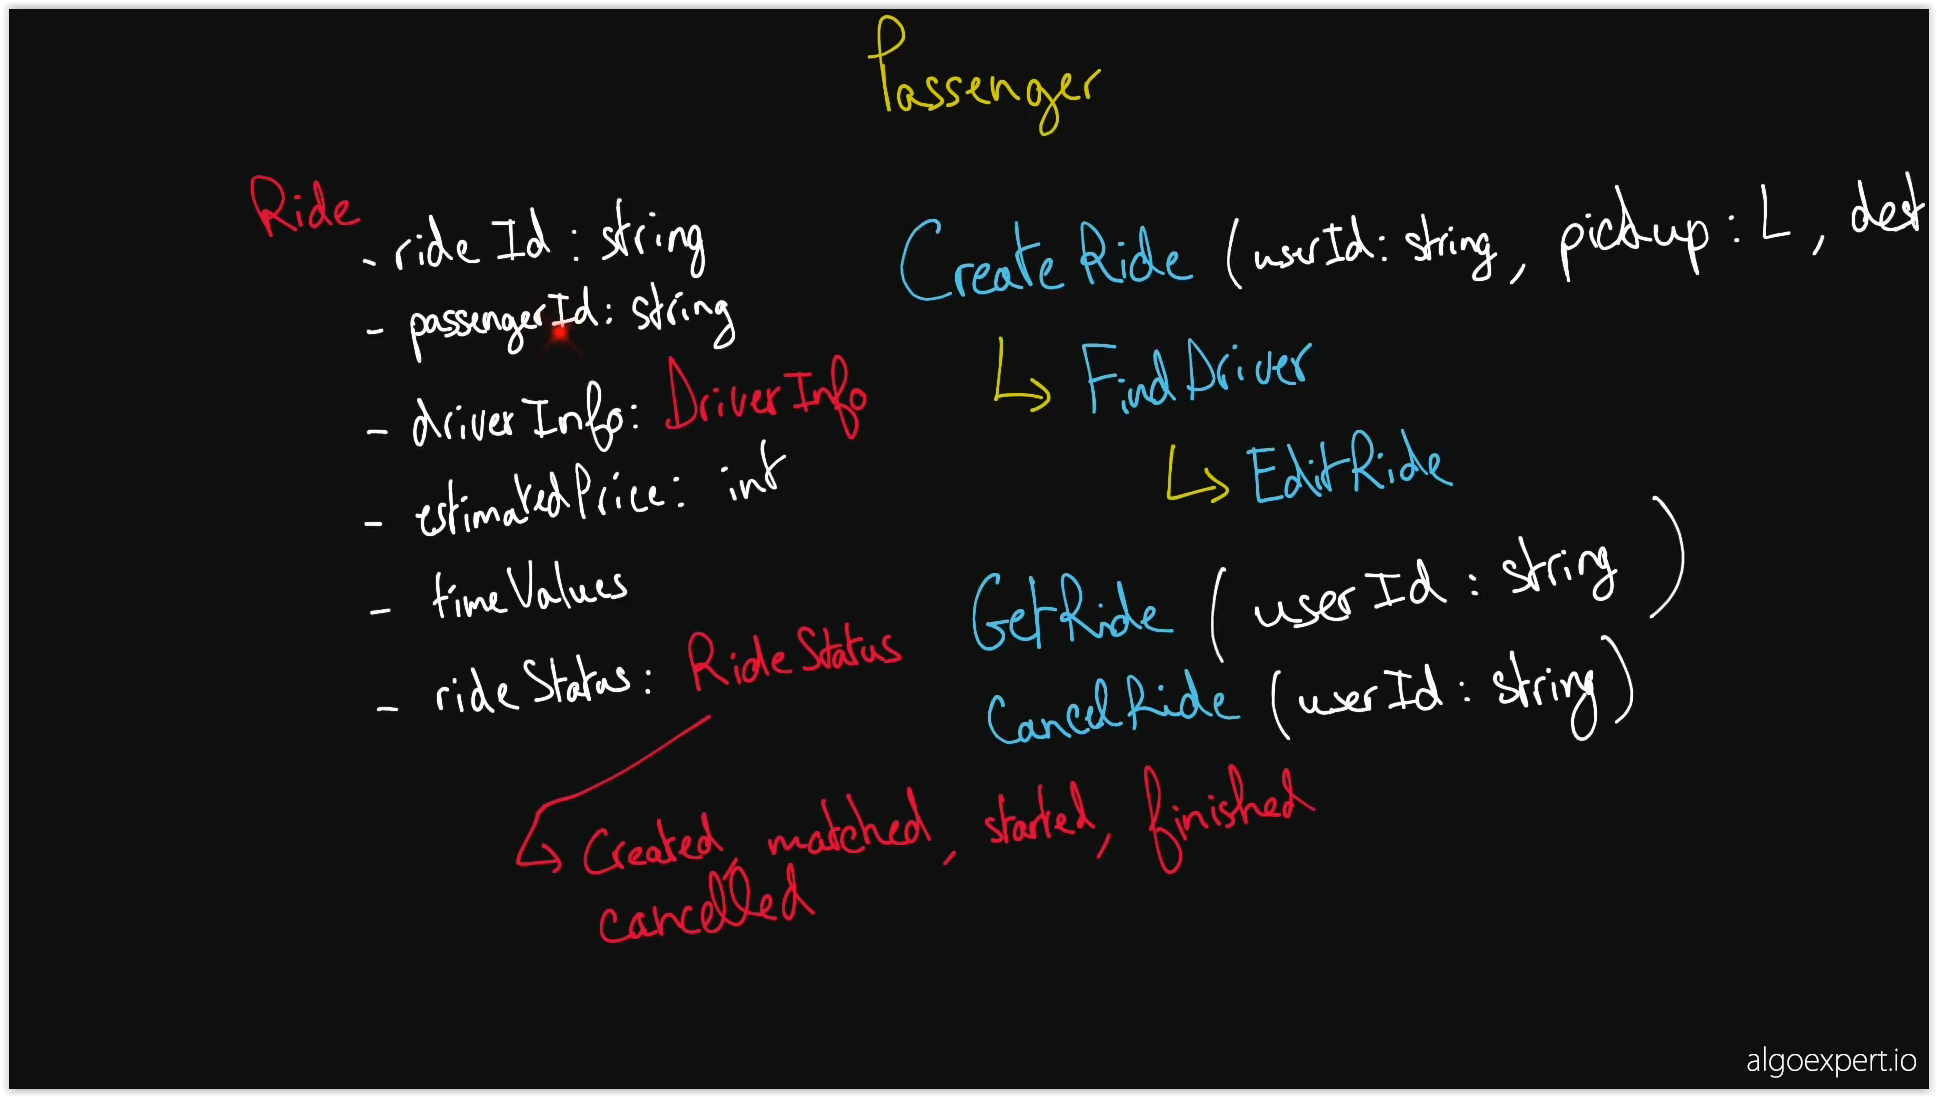 Passenger
Ride
- rideId: string
- passengerId: string
- driverInfo: DriverInfo
- estimatedPrice: int
- timeValues
- rideStatus: RideStatus
Created, matched, started, finished
cancelled
CreateRide (userId: string, pickup: L, dest
FindDriver
EditRide
GetRide (userId: string)
CancelRide (userId: string)
algoexpert.io